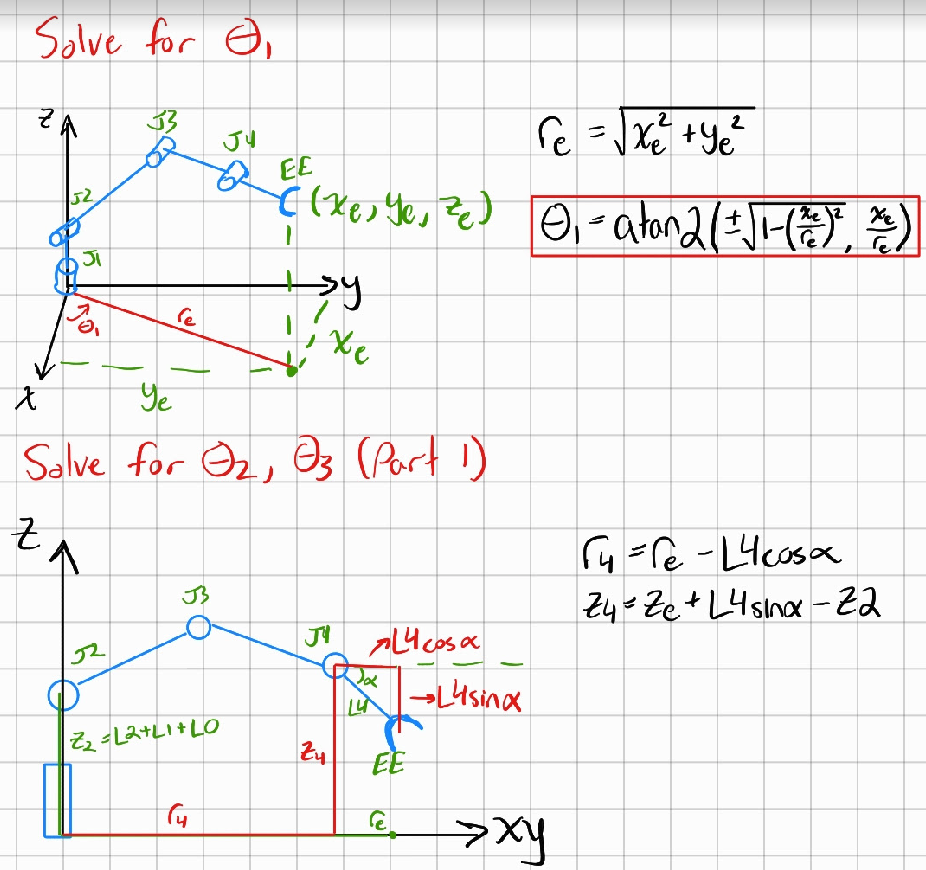 Solve for θ₁
z
J3
J4
EE
(xₑ, yₑ, zₑ)
J2
J1
y
θ₁
rₑ
xₑ
x
yₑ
rₑ = √(xₑ² + yₑ²)
θ₁ = atan2(±√(1-(xₑ/rₑ)²), xₑ/rₑ)
Solve for θ₂, θ₃ (Part 1)
z
J3
J2
J4
L4cosα
α
L4
L4sinα
z₂ = L2+L1+L0
z₄
EE
r₄
rₑ
xy
r₄ = rₑ - L4cosα
z₄ = zₑ + L4sinα - z2